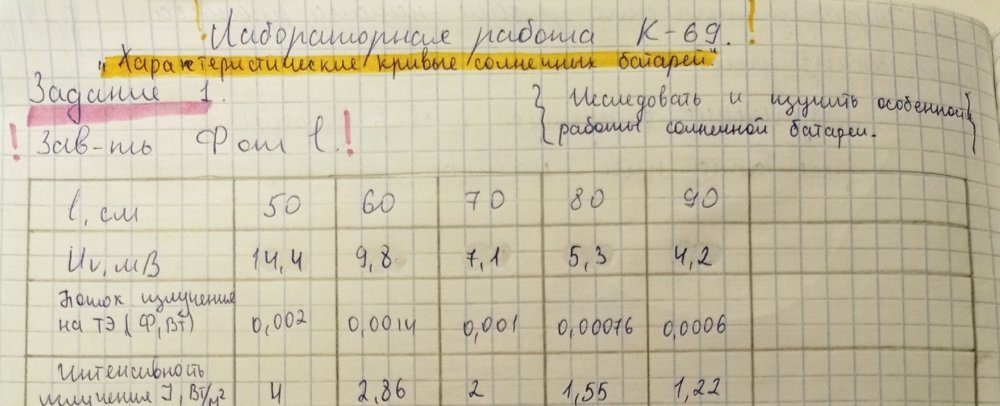 ! Лабораторная работа К-69. !
"Характеристические кривые солнечных батарей"
Задание 1.
{ Исследовать и изучить особенности
работы солнечной батареи. }
! Зав-ть Ф от l. !
l, см 50 60 70 80 90
Uv, мВ 14,4 9,8 7,1 5,3 4,2
Поток излучения
на ТЭ (Ф, Вт) 0,002 0,0014 0,001 0,00076 0,0006
Интенсивность
излучения J, Вт/м² 4 2,86 2 1,55 1,22